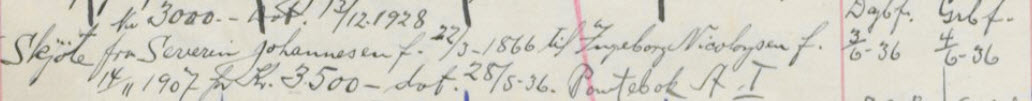 Kr 3000.- dat. 13/12-1928 Dgbf. Grbf.
Skjöte fra Severin Johannesen f. 22/3-1866 til Ingeborg Nicolaysen f. 3/6-36 4/6-36
14/11 1907 for Kr. 3500- dat. 28/5-36. Pantebok A I